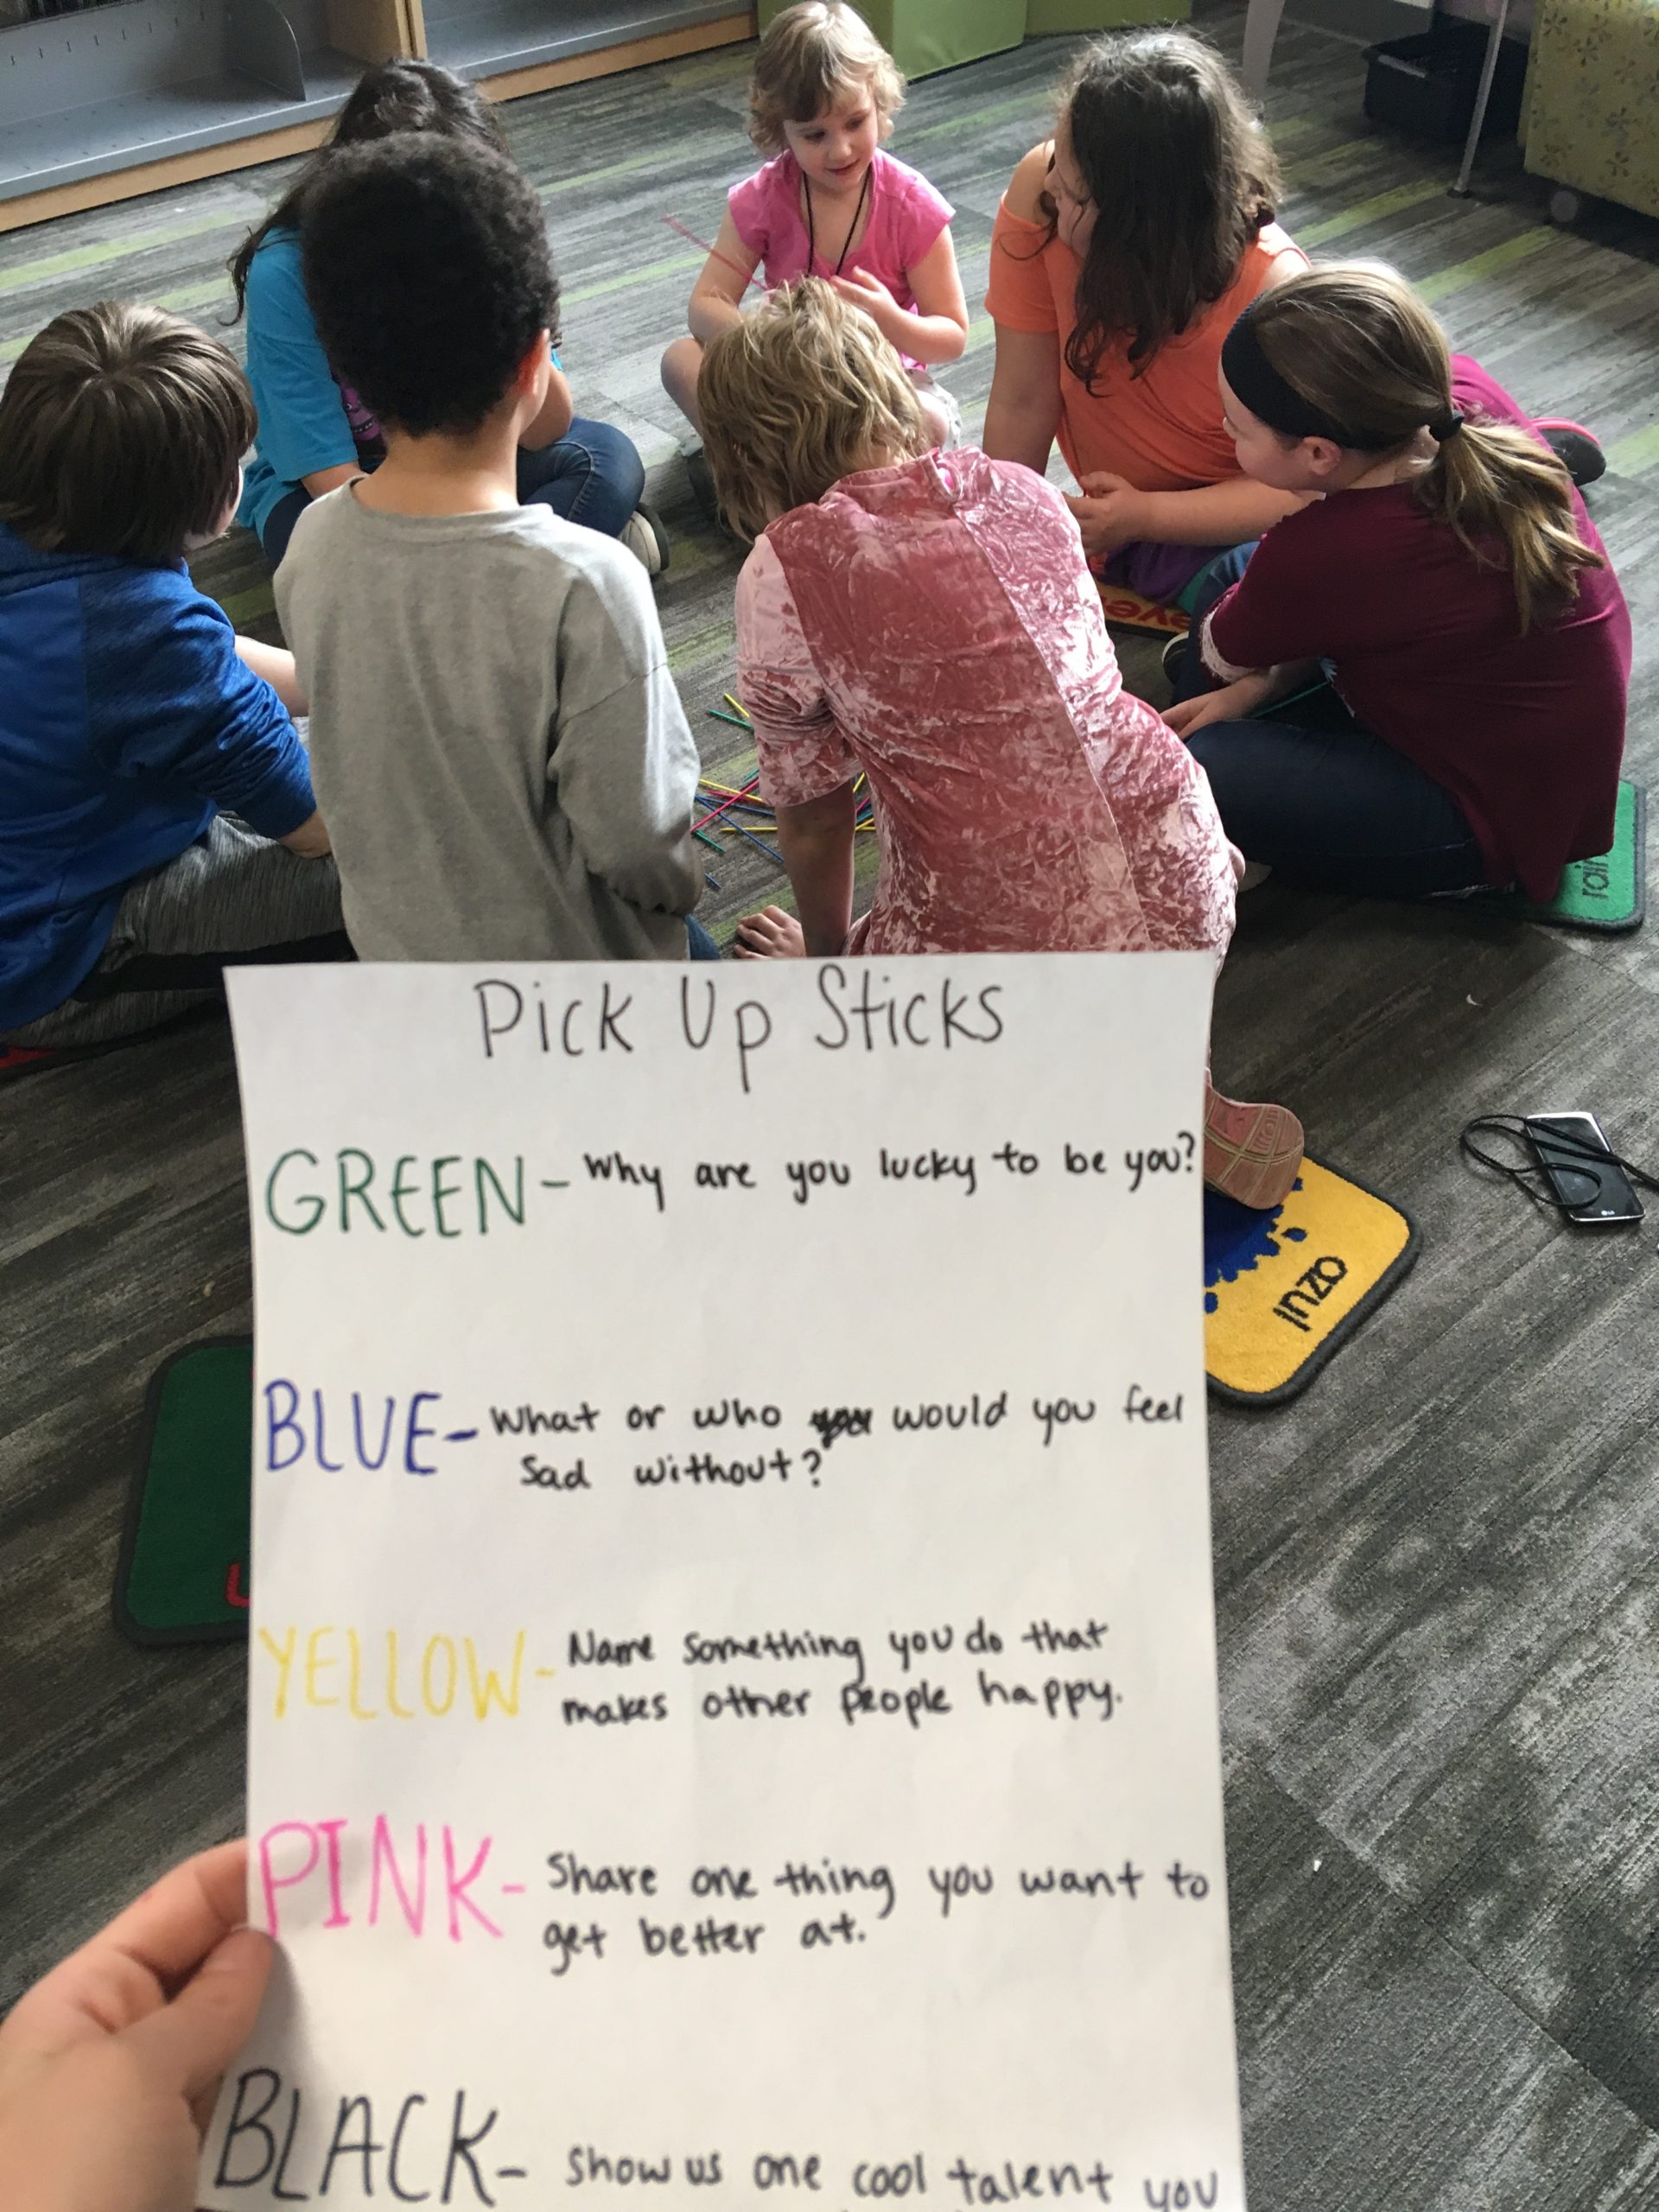 Pick Up Sticks
GREEN - Why are you lucky to be you?
BLUE - What or who would you feel
sad without?
YELLOW - Name something you do that
makes other people happy.
PINK - Share one thing you want to
get better at.
BLACK - Show us one cool talent you
azul
LG